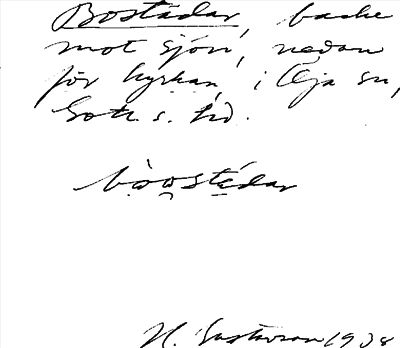 Bostädar, backe
mot sjön, nedan
för kyrkan, i Öja sn,
Gotl. s. hd.
bòostédar
H. Gustavson 1938